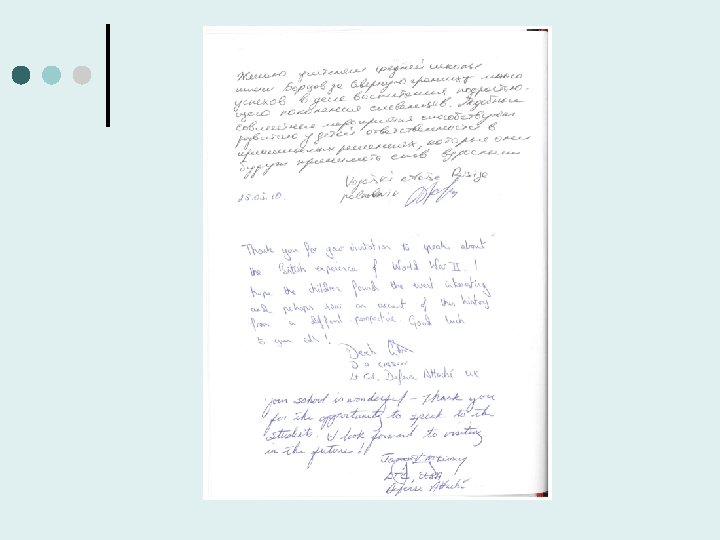 Желаю учителям средней школы
имени Борцов за Северную границу много
успехов в деле воспитания подрастаю-
щего поколения словенцев. Подобные
совместные мероприятия способствуют
развитию у детей ответственности в
принципиальных решениях, которые они
будут принимать став взрослыми
25.03.10.
Thank you for your invitation to speak about
the British experience of World War II. I
hope the children found the event interesting
and perhaps saw an account of this history
from a different perspective. Good luck
to you all!
Lt Col, Defence Attaché UK
Your school is wonderful – Thank you
for the opportunity to speak to the
students. I look forward to visiting
in the future!
LTC, USA
Defense Attaché